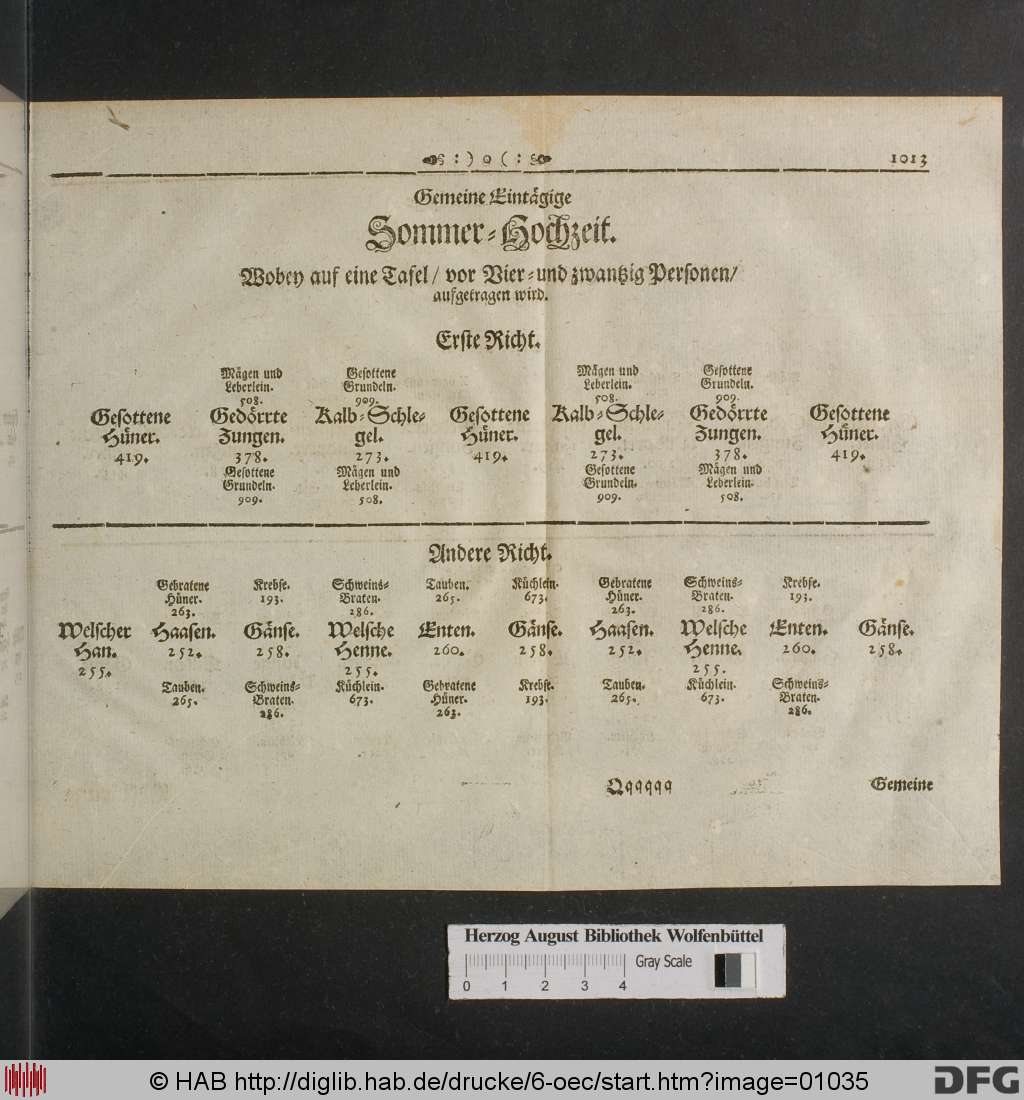 :) o (: 1013
Gemeine Eintägige
Sommer-Hochzeit.
Wobey auf eine Tafel / vor Vier-und zwantzig Personen /
aufgetragen wird.
Erste Richt.
Mägen und Gesottene Mägen und Gesottene
Leberlein. Grundeln. Leberlein. Grundeln.
508. 909. 508. 909.
Gesottene Gedörrte Kalb-Schle- Gesottene Kalb-Schle- Gedörrte Gesottene
Hüner. Zungen. gel. Hüner. gel. Zungen. Hüner.
419. 378. 273. 419. 273. 378. 419.
Gesottene Mägen und Gesottene Mägen und
Grundeln. Leberlein. Grundeln. Leberlein.
909. 508. 909. 508.
Andere Richt.
Gebratene Krebse. Schweins- Tauben. Küchlein. Gebratene Schweins- Krebse.
Hüner. 193. Braten. 265. 673. Hüner. Braten. 193.
263. 286. 263. 286.
Welscher Haasen. Gänse. Welsche Enten. Gänse. Haasen. Welsche Enten. Gänse.
Han. 252. 258. Henne. 260. 258. 252. Henne. 260. 258.
255. 255. 255.
Tauben. Schweins- Küchlein. Gebratene Krebse. Tauben. Küchlein. Schweins-
265. Braten. 673. Hüner. 193. 265. 673. Braten.
286. 263. 286.
Qqqqqq Gemeine
Herzog August Bibliothek Wolfenbüttel
Gray Scale
0 1 2 3 4
© HAB http://diglib.hab.de/drucke/6-oec/start.htm?image=01035
DFG